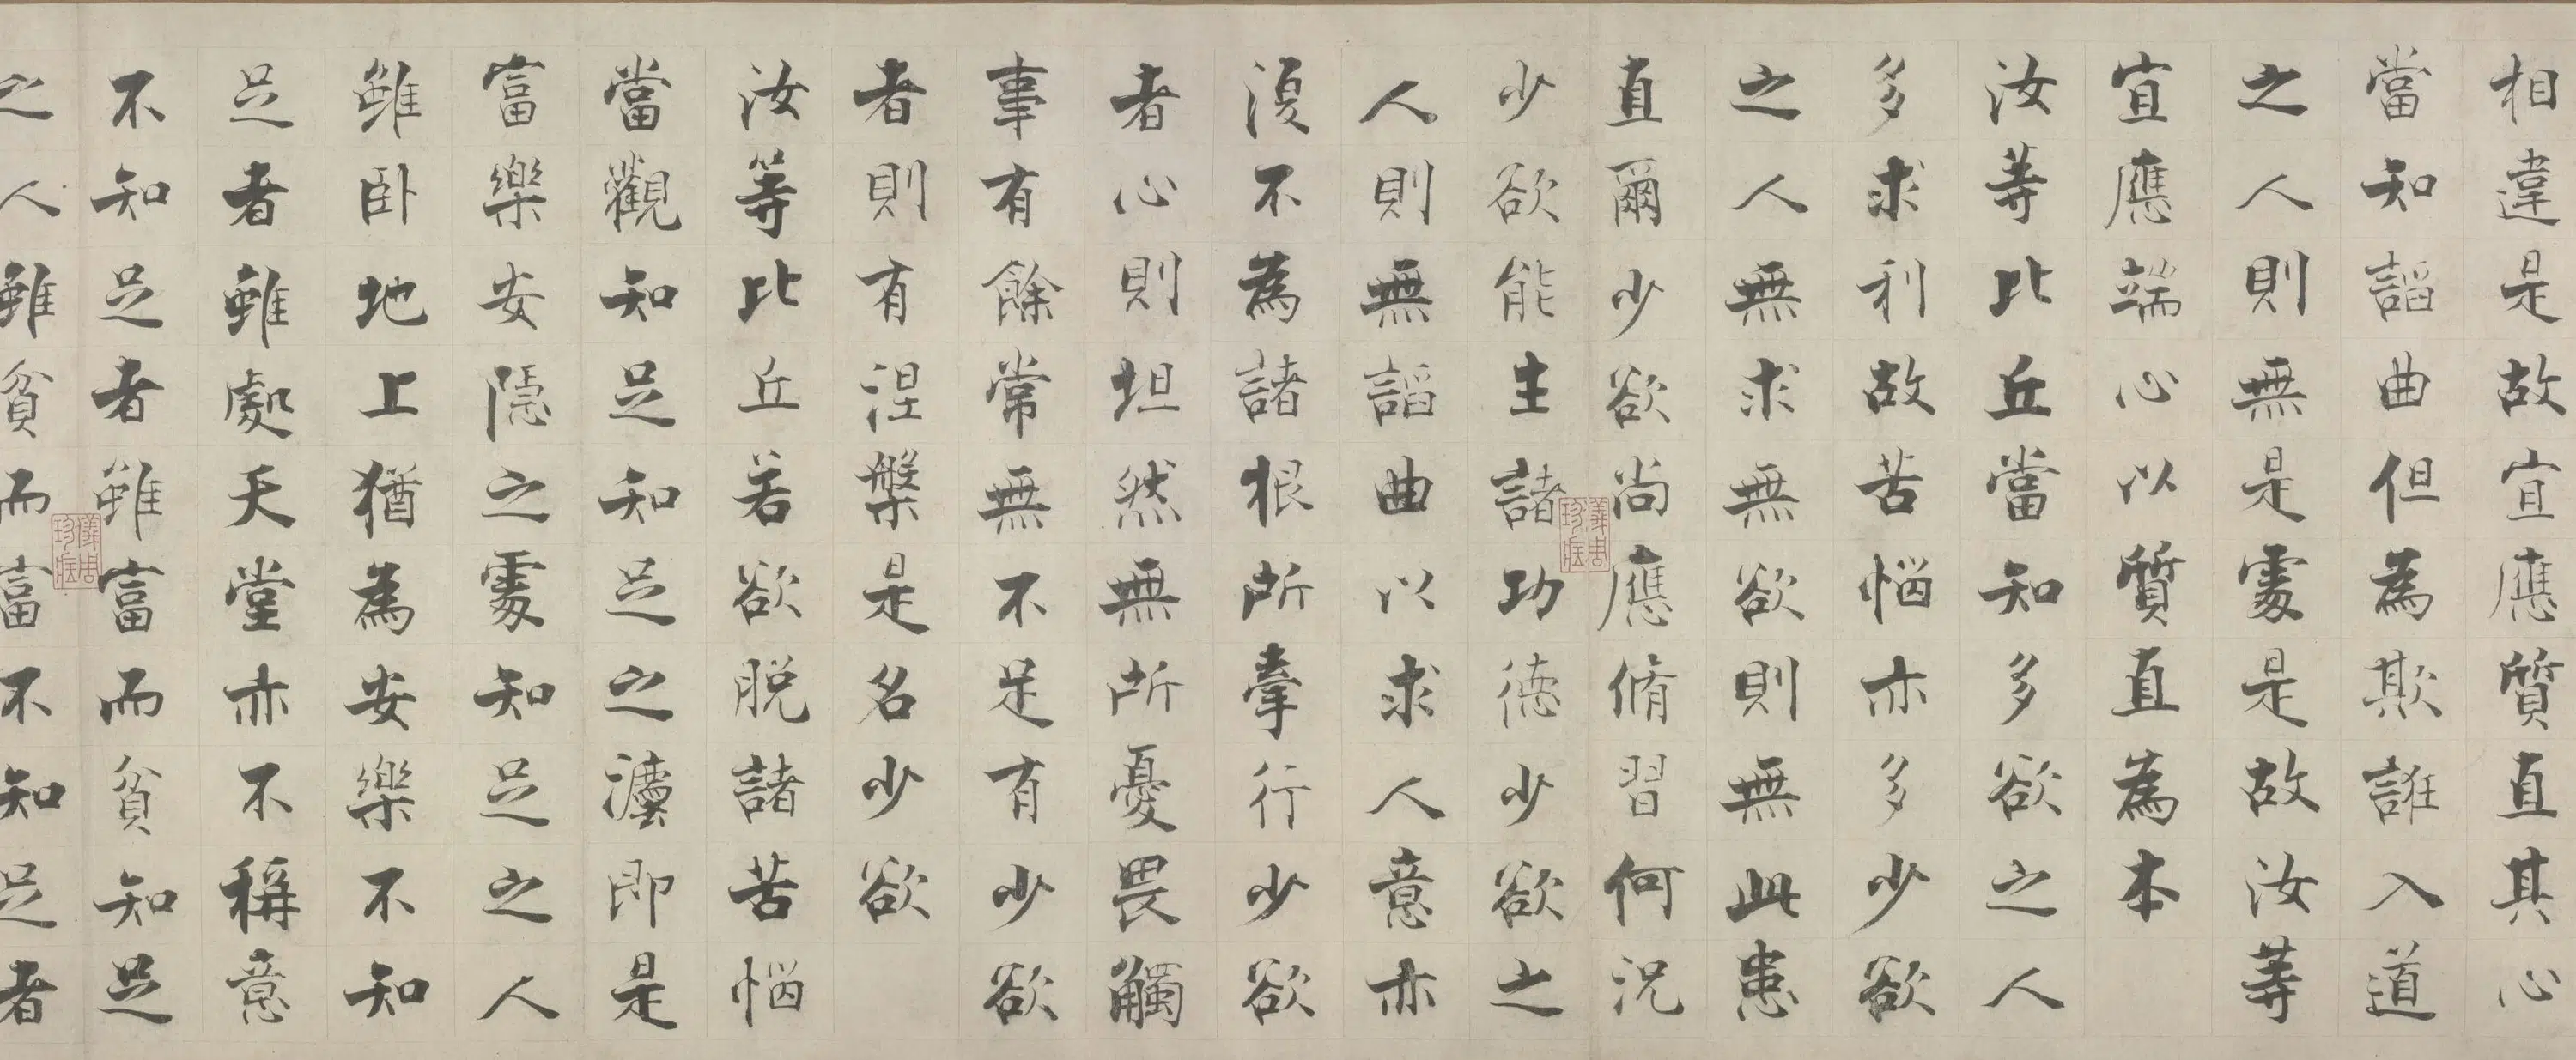 相違是故宜應質直其心
當知諂曲但為欺誑入道
之人則無是處是故汝等
宜應端心以質直為本
汝等比丘當知多欲之人
多求利故苦惱亦多少欲
之人無求無欲則無此患
直爾少欲尚應脩習何況
少欲能生諸功德少欲之
人則無諂曲以求人意亦
復不為諸根所牽行少欲
者心則坦然無所憂畏觸
事有餘常無不足有少欲
者則有涅槃是名少欲
汝等比丘若欲脫諸苦惱
當觀知足知足之灋即是
富樂安隱之處知足之人
雖卧地上猶為安樂不知
足者雖處天堂亦不稱意
不知足者雖富而貧知足
之人雖貧而富不知足者
儀周珍藏
儀周珍藏